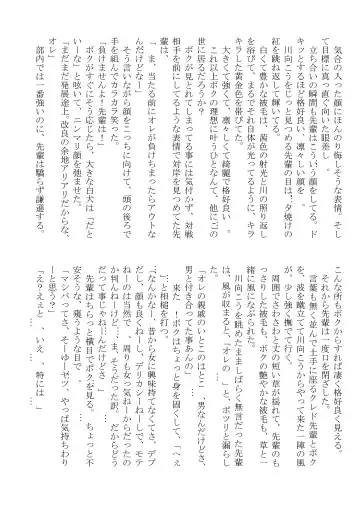 気合の入った顔にほんのり悔しそうな表情。そし
て目標に真っ直ぐ向いた眼差し。
立ち合いの瞬間も先輩はこういう顔をしてる。ド
キッとするほど格好良い、凛々しい顔を。
川向こうをじっと見つめる先輩の目は、夕焼けの
紅を跳ね返して輝いてる。
白くて豊かな被毛は、茜色の射光と川の照り返し
を浴びて、まるでそれ自体が光ってるように、キラ
キラした黄金色を帯びてた。
大きくて強くて、凛々しくて綺麗で格好良い…。
これ以上ボクの理想に叶うひとなんて、他にこの
世に居るだろうか?
ボクが見とれてしまってる事には気付かず、対戦
相手を前にしてるような表情で対岸を見つめてた先
輩は、
「ま、当たる前にオレが負けちまったらアウトな
んだけどなー」
そう言いながら顔をこっちに向けて、頭の後ろで
手を組んでカラカラ笑った。
「負けませんよ!先輩は!」
ボクがすぐにそう応じたら、大きな白犬は「だと
いーな」と呟いて、ニンマリ顔を弛ませた。
「まだまだ発展途上、改良の余地アリアリだからな、
オレ」
部内では一番強いのに、先輩は驕らず謙遜する。
こんな所もボクからすれば凄く格好良く見える。
それから先輩は一度口を閉ざした。
言葉も無く並んで土手に座るクレド先輩とボク
を、波を蹴立てて川向こうからやって来た一陣の風
が、少し強く撫でて行く。
周囲でさわさわと丈の短い草が揺れて、先輩のも
っさりした被毛が、ボクの艶やかな被毛も、草と一
緒に風になぶられた。
川向こうを眺めたまましばらく無言だった先輩
は、風が収まると、「オレの」と、ポツリと漏らし
た。
「オレの親戚のいとこのはとこ…男なんだけどさ、
男と付き合ってた事あんの」
来た!ボクはちょっと身を固くして、「へぇ
…」と相槌を打つ。
「なんかなー、昔から女に興味持てなくてさ、デブ
だし、顔も良くねーし、デリカシーねーしで、モテ
ねーのは当然で、周りも女っ気ねーからだったの
か判んねーけど…ま、そうだった訳。だからどう
だって事じゃねーんだけどさ」
先輩はちらっと横目でボクを見る。ちょっと不
安そうな、窺うような目で…。
「マシバってさ、そーゆーヤツ、やっぱ気持ちわり
ーと思う?」
「え?ええと…いえ…、特には…」